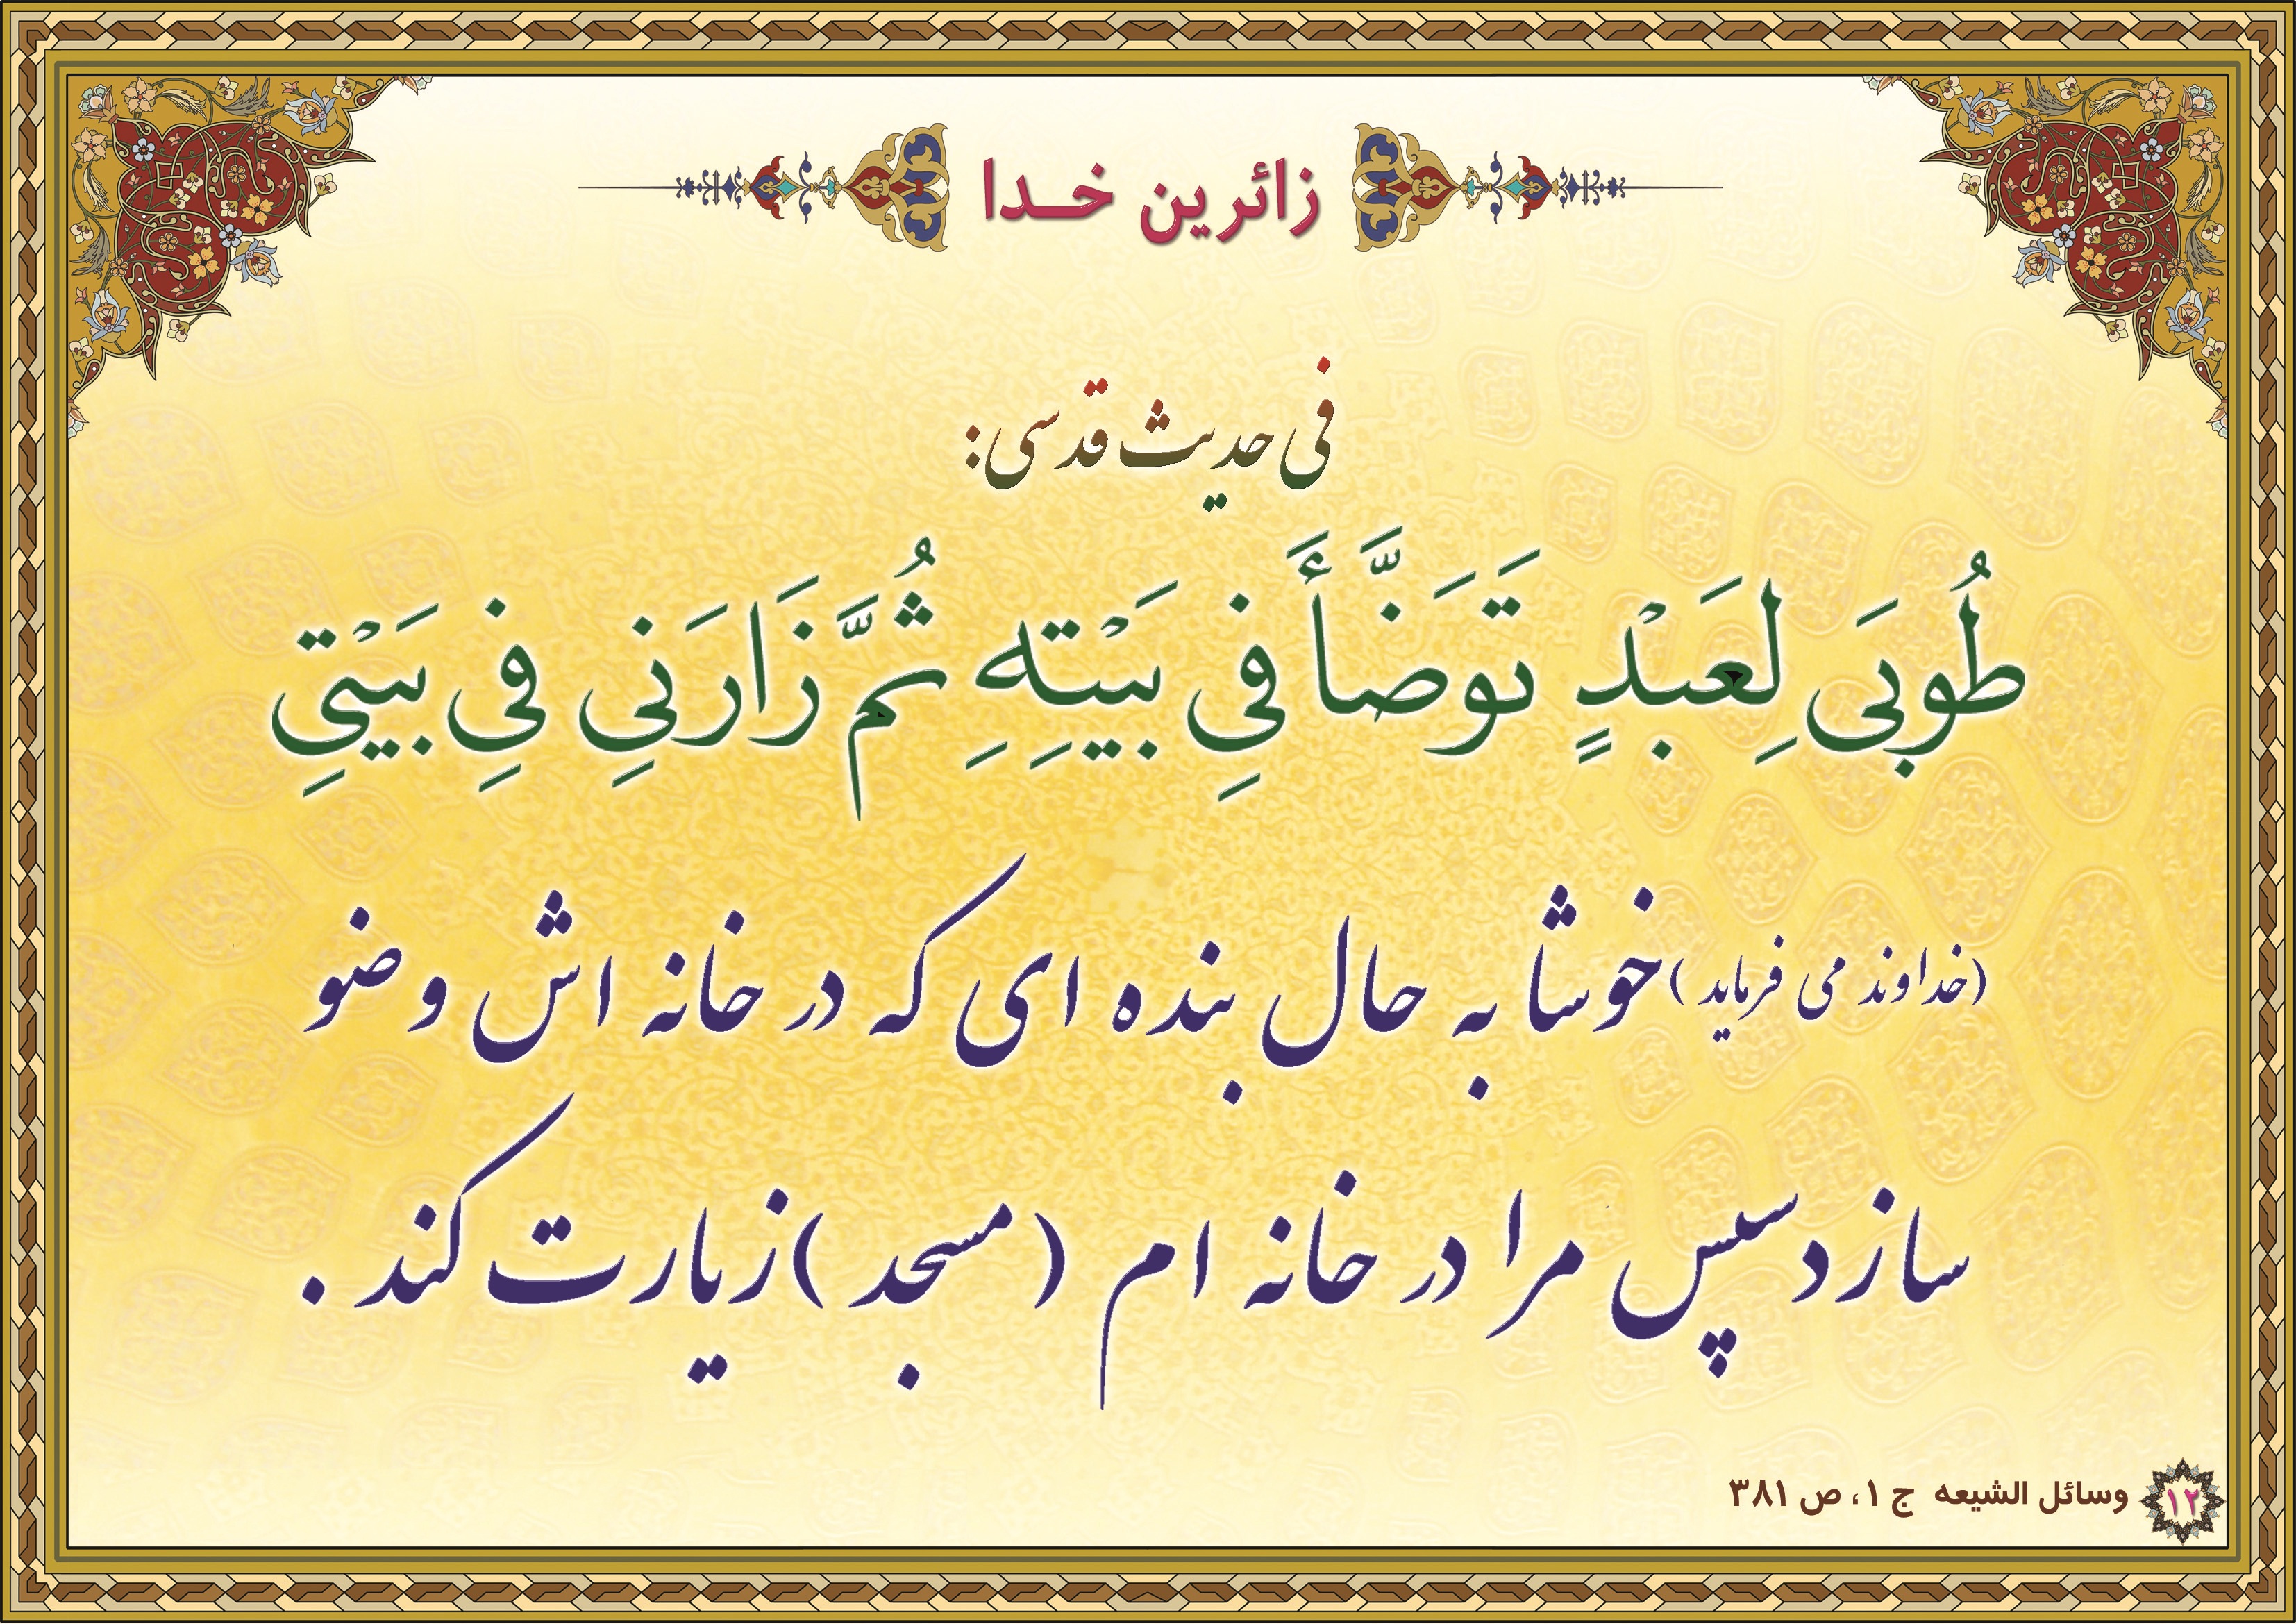 زائرین خدا
فی حدیث قدسی:
طُوبَی لِعَبْدٍ تَوَضَّأَ فِي بَيْتِهِ ثُمَّ زَارَنِي فِي بَيْتِي
(خداوند می فرماید) خوشا به حال بنده ای که در خانه اش وضو
سازد سپس مرا در خانه ام (مسجد) زیارت کند .
۱۲ وسائل الشیعه ج ۱، ص ۳۸۱